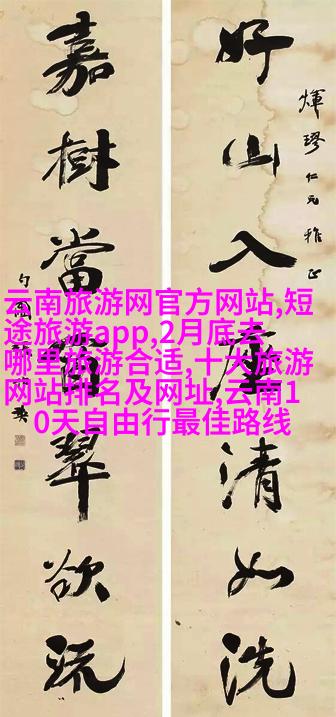 好山入座清如洗
煇璆仁兄雅正
嘉樹當窗翠欲流
云南旅游网官方网站,短
途旅游app,2月底去
哪里旅游合适,十大旅游
网站排名及网址,云南1
0天自由行最佳路线